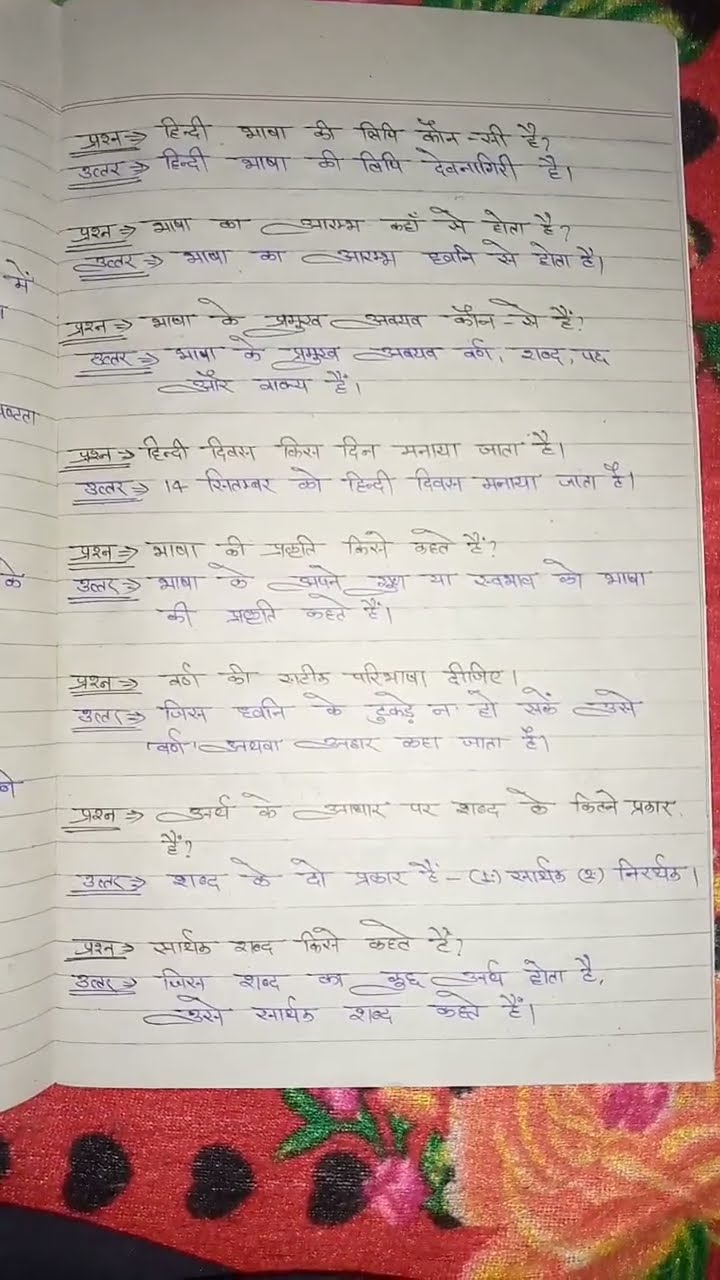 प्रश्न⇒ हिन्दी भाषा की लिपि कौन-सी है?
उत्तर⇒ हिन्दी भाषा की लिपि देवनागिरी है।
प्रश्न⇒ भाषा का आरम्भ कहाँ से होता है?
उत्तर⇒ भाषा का आरम्भ ध्वनि से होता है।
प्रश्न⇒ भाषा के प्रमुख अवयव कौन-से हैं?
उत्तर⇒ भाषा के प्रमुख अवयव वर्ण, शब्द, पद
और वाक्य हैं।
प्रश्न⇒ हिन्दी दिवस किस दिन मनाया जाता है।
उत्तर⇒ 14 सितम्बर को हिन्दी दिवस मनाया जाता है।
प्रश्न⇒ भाषा की प्रकृति किसे कहते हैं?
उत्तर⇒ भाषा के अपने गुण या स्वभाव को भाषा
की प्रकृति कहते हैं।
प्रश्न⇒ वर्ण की सटीक परिभाषा दीजिए।
उत्तर⇒ जिस ध्वनि के टुकड़े न हो सकें उसे
'वर्ण' अथवा अक्षर कहा जाता है।
प्रश्न⇒ अर्थ के आधार पर शब्द के कितने प्रकार
हैं?
उत्तर⇒ शब्द के दो प्रकार हैं - (1) सार्थक (2) निरर्थक।
प्रश्न⇒ सार्थक शब्द किसे कहते हैं?
उत्तर⇒ जिस शब्द का कुछ अर्थ होता है,
उसे सार्थक शब्द कहते हैं।
में
के